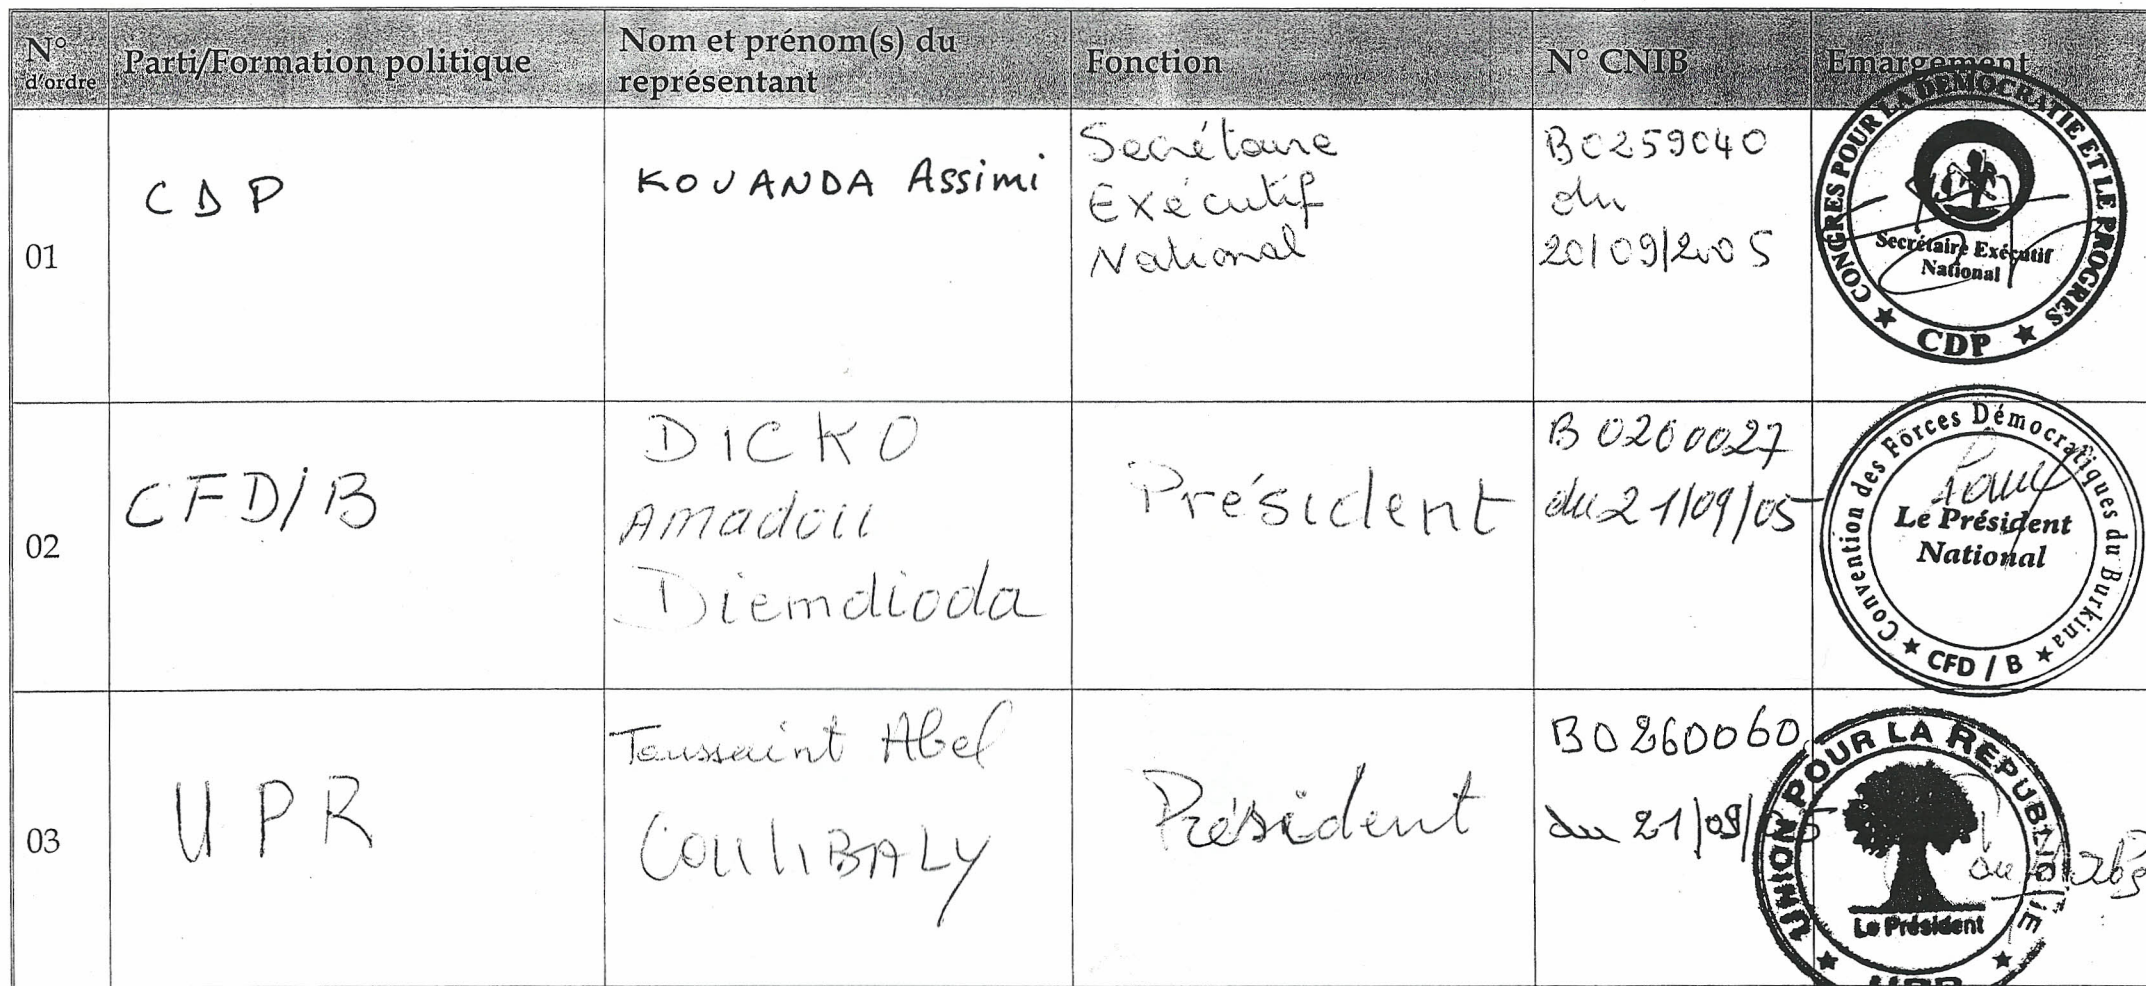 N° d'ordre
Parti/Formation politique
Nom et prénom(s) du
représentant
Fonction
N° CNIB
Emargement
01
CDP
KOUANDA Assimi
Secrétaire
Exécutif
National
B0259040
du
20/09/2005
CONGRES POUR LA DEMOCRATIE ET LE PROGRES
Secrétaire Exécutif
National
★ CDP ★
02
CFD/B
DICKO
Amadou
Diemdioda
Président
B 0260027
du 21/09/05
Convention des Forces Démocratiques du Burkina
Le Président
National
★ CFD / B ★
03
UPR
Toussaint Abel
COULIBALY
Président
B0260060
du 21/09/
UNION POUR LA REPUBLIQUE
Le Président
★ UPR ★